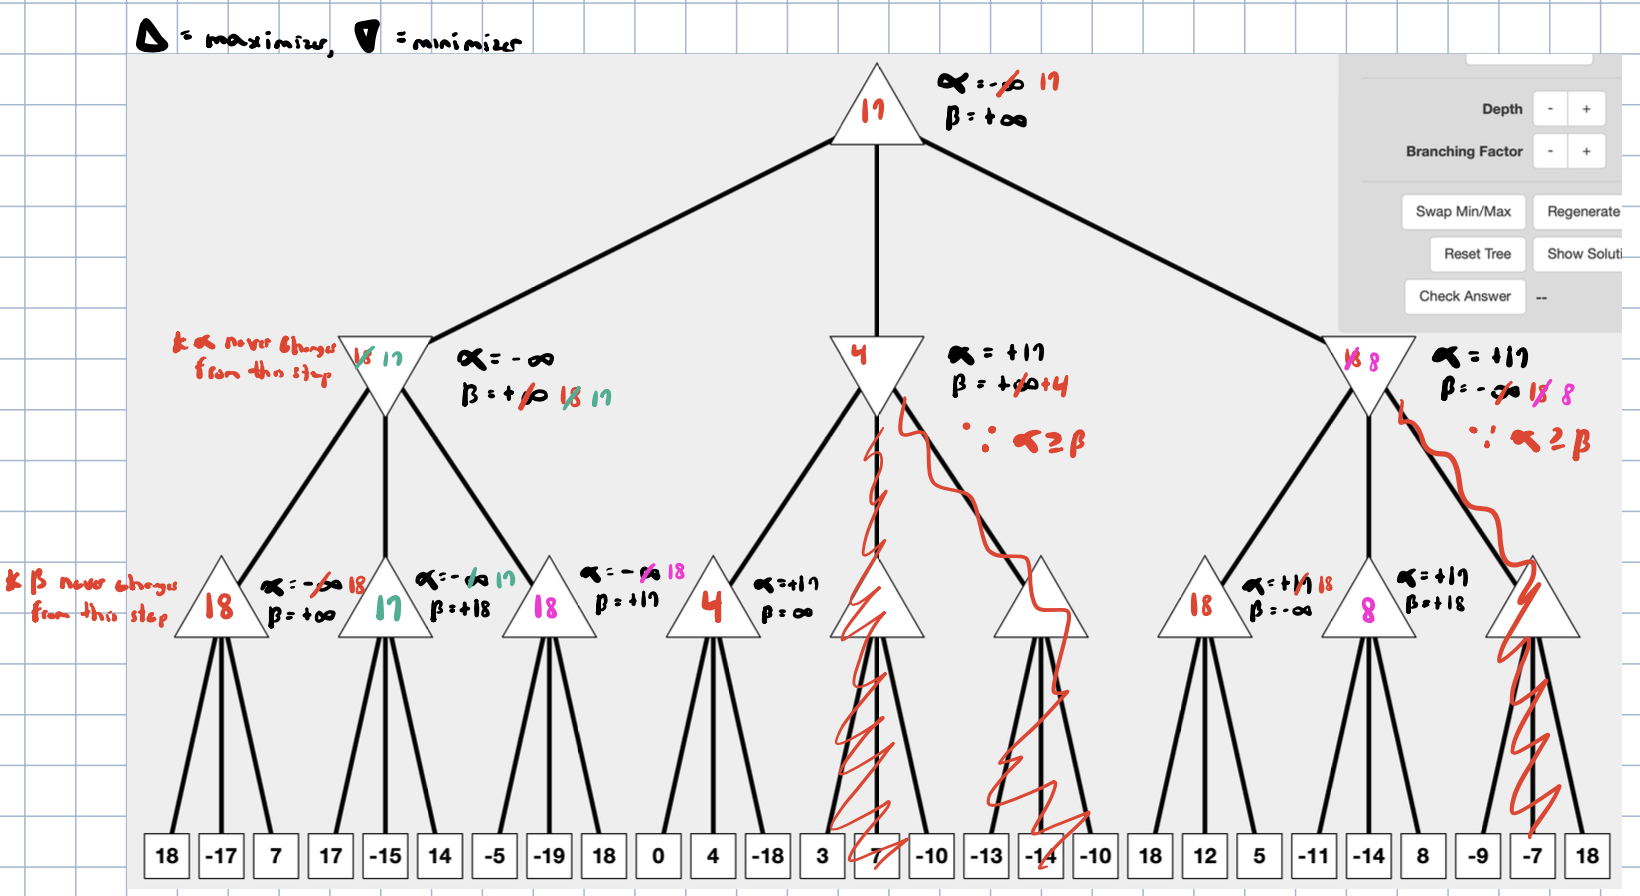 Δ = maximizer, ∇ = minimizer
α = -∞ 17
β = +∞
17
Depth - +
Branching Factor - +
Swap Min/Max Regenerate
Reset Tree Show Soluti
Check Answer --
* α never changes
from this step
18 17
α = -∞
β = +∞ 18 17
4
α = +17
β = +∞ +4
∵ α ≥ β
18 8
α = +17
β = -∞ 18 8
∵ α ≥ β
* β never changes
from this step
18
α = -∞ 18
β = +∞
17
α = -∞ 17
β = +18
18
α = -∞ 18
β = +17
4
α = +17
β = ∞
18
α = +17 18
β = -∞
8
α = +17
β = +18
18 -17 7 17 -15 14 -5 -19 18 0 4 -18 3 7 -10 -13 -14 -10 18 12 5 -11 -14 8 -9 -7 18